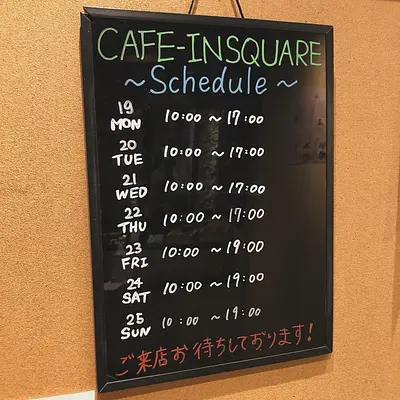 CAFE-INSQUARE
~Schedule~
19 MON 10:00 ~ 17:00
20 TUE 10:00 ~ 17:00
21 WED 10:00 ~ 17:00
22 THU 10:00 ~ 17:00
23 FRI 10:00 ~ 19:00
24 SAT 10:00 ~ 19:00
25 SUN 10:00 ~ 19:00
ご来店お待ちしております!